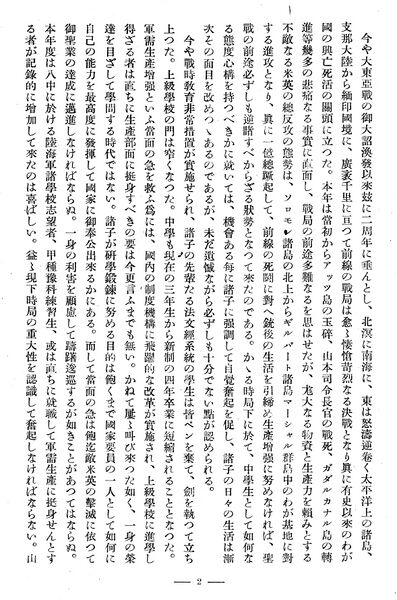 今や大東亞戰の御大詔渙發以來玆に二周年に垂んとし、北溟に南海に、東は怒濤逆卷く太平洋上の諸島、
支那大陸から緬印國境に、廣袤千里に亘つて前線の戰局は愈〻悽愴苛烈なる決戰となり眞に有史以來のわが
國の興亡死活の關頭に立つた。本年は當初からアッツ島の玉碎、山本司令長官の戰死、ガダルカナル島の轉
進等幾多の悲痛なる事實に直面し、戰局の前途多難なるを思はせたが、尨大なる物資と生產力を賴みとする
不敵なる米英の總反攻の態勢は、ソロモン諸島の北上からギルバート諸島マーシャル群島中のわが基地に對
する進攻となり、眞に一億總蹶起して、前線の死鬪に對へ銃後の生活を引締め生產增强に努めなければ、聖
戰の前途必ずしも逆睹すべからざる狀勢となつて來たのである。かゝる時局下に於て、中學生としての如何な
る態度心構を持つべきかに就いては、機會ある每に諸子に强調して自覺奮起を促し、諸子の日々の生活は漸
次その面目を改めつゝあるのであるが、未だ遺憾ながら必ずしも十分でない點が認められる。
今や戰時敎育非常措置が實施せられ、諸子の先輩たる法文經系統の學生は皆ペンを棄て、劍を執つて立ち
上つた。上級學校の門は窄くなつた。中學も現在の三年生から新制の四年卒業に短縮されることとなつた。
軍需生產增强といふ當面の急を救ふ爲には、國內の制度機構に飛躍的な改革が實施され、上級學校に進學し
得ざる者は直ちに生產部面に挺身すべきの要は今更言ふまでも無い。かねて屢〻叫び來つた如く、一身の榮
達を目ざして學問する時代ではない。諸子が硏學鍛鍊に努める目的は飽くまで國家要員の一人として如何に
自己の能力を最高度に發揮して國家に御奉公出來るかにある。而して當面の急は飽迄敵米英の擊滅に依つて
御聖業の達成に邁進しなければならぬ。一身の利害を顧慮して躊躇逡巡するが如きことがあつてはならぬ。
本年度は八中に於ける陸海軍諸學校志望者、甲種豫科練習生、或は直ちに就職して軍需生產に挺身せんとす
る者が記錄的に增加して來たのは喜ばしい。益〻現下時局の重大性を認識して奮起しなければならない。山
— 2 —